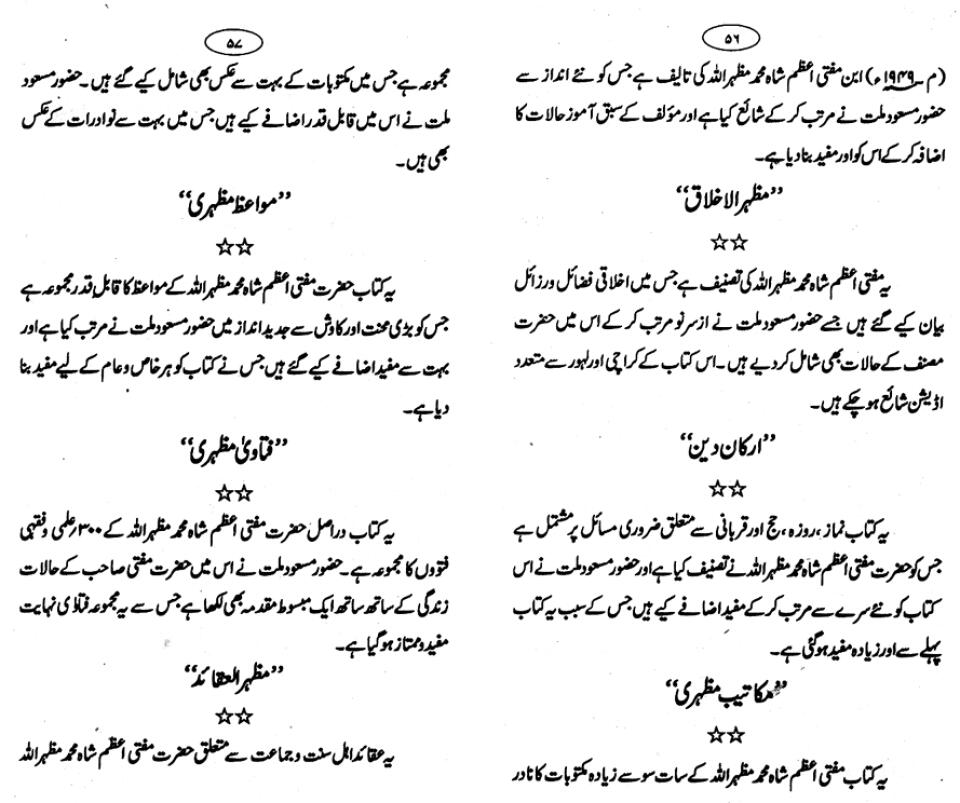 ۵۶
(م ۱۹۴۹ء) ابن مفتی اعظم شاہ محمد مظہر اللہ کی تالیف ہے جس کو نئے انداز سے
حضور مسعود ملت نے مرتب کر کے شائع کیا ہے اور مؤلف کے سبق آموز حالات کا
اضافہ کر کے اس کو اور مفید بنا دیا ہے۔
”مظہر الاخلاق“
☆☆
یہ مفتی اعظم شاہ محمد مظہر اللہ کی تصنیف ہے جس میں اخلاقی فضائل ورزائل
بیان کیے گئے ہیں جسے حضور مسعود ملت نے ازسرنو مرتب کر کے اس میں حضرت
مصنف کے حالات بھی شامل کر دیے ہیں۔ اس کتاب کے کراچی اور لہور سے متعدد
اڈیشن شائع ہو چکے ہیں۔
”ارکان دین“
☆☆
یہ کتاب نماز، روزہ، حج اور قربانی سے متعلق ضروری مسائل پر مشتمل ہے
جس کو حضرت مفتی اعظم شاہ محمد مظہر اللہ نے تصنیف کیا ہے اور حضور مسعود ملت نے اس
کتاب کو نئے سرے سے مرتب کر کے مفید اضافے کیے ہیں جس کے سبب یہ کتاب
پہلے سے اور زیادہ مفید ہو گئی ہے۔
”مکاتیب مظہری“
☆☆
یہ کتاب مفتی اعظم شاہ محمد مظہر اللہ کے سات سو سے زیادہ مکتوبات کا نادر
۵۷
مجموعہ ہے جس میں مکتوبات کے بہت سے عکس بھی شامل کیے گئے ہیں۔ حضور مسعود
ملت نے اس میں قابل قدر اضافے کیے ہیں جس میں بہت سے نوادرات کے عکس
بھی ہیں۔
”مواعظ مظہری“
☆☆
یہ کتاب حضرت مفتی اعظم شاہ محمد مظہر اللہ کے مواعظ کا قابل قدر مجموعہ ہے
جس کو بڑی محنت اور کاوش سے جدید انداز میں حضور مسعود ملت نے مرتب کیا ہے اور
بہت سے مفید اضافے کیے گئے ہیں جس نے کتاب کو ہر خاص و عام کے لیے مفید بنا
دیا ہے۔
”فتاویٰ مظہری“
☆☆
یہ کتاب دراصل حضرت مفتی اعظم شاہ محمد مظہر اللہ کے ۳۰۰؍ علمی و فقہی
فتوں کا مجموعہ ہے۔ حضور مسعود ملت نے اس میں حضرت مفتی صاحب کے حالات
زندگی کے ساتھ ساتھ ایک مبسوط مقدمہ بھی لکھا ہے جس سے یہ مجموعہ فتاوٰی نہایت
مفید و ممتاز ہو گیا ہے۔
”مظہر العقائد“
☆☆
یہ عقائد اہل سنت و جماعت سے متعلق حضرت مفتی اعظم شاہ محمد مظہر اللہ